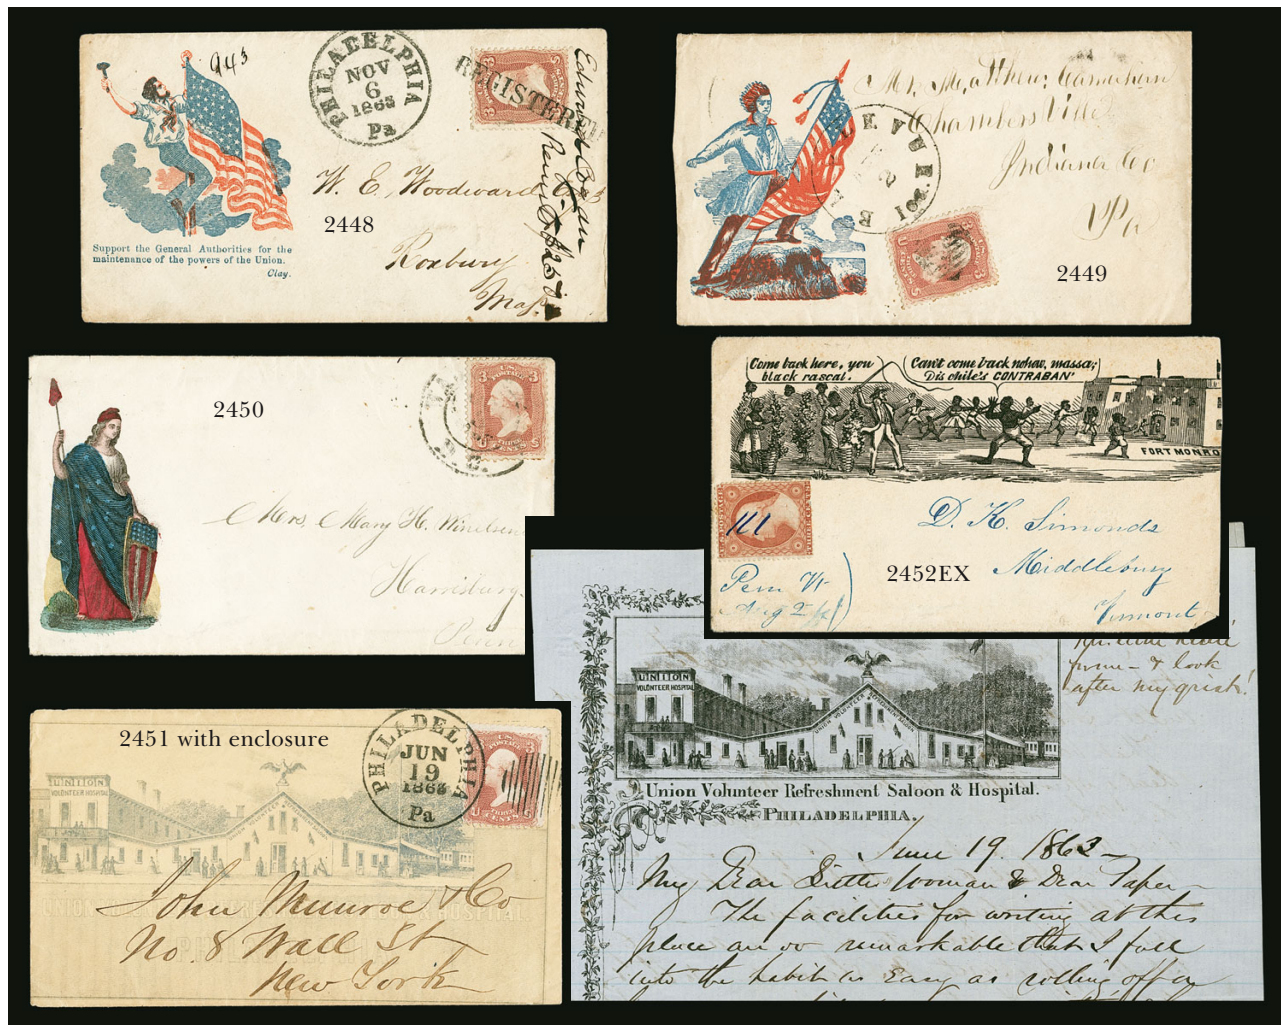 943
PHILADELPHIA
NOV
6
1863
Pa
REGISTERED
W. E. Woodward
Roxbury
Mass.
2448
Support the General Authorities for the
maintenance of the powers of the Union.
Clay.
Mr. Matthew
Chambersville
Indiana Co
Pa
2449
2450
3 3
U.S.
POSTAGE
Mrs. Mary H.
Harrisburg
Penn
Come back here, you
black rascal.
Can't come back nohow, massa;
Dis chile's CONTRABAN'
FORT MONRO
111
D. K. Simonds
Middlebury
Vermont
2452EX
2451 with enclosure
UNION
VOLUNTEER HOSPITAL
PHILADELPHIA
JUN
19
1863
Pa
John Munroe & Co
No. 8 Wall St
New York
& look
after my grist!
UNION
VOLUNTEER HOSPITAL
UNION VOLUNTEER REFRESHMENT SALOON
Union Volunteer Refreshment Saloon & Hospital.
PHILADELPHIA.
June 19. 1863
My Dear Little Woman & Dear Papa
The facilities for writing at this
place are so remarkable that I fall
into the habit as easy as rolling off a